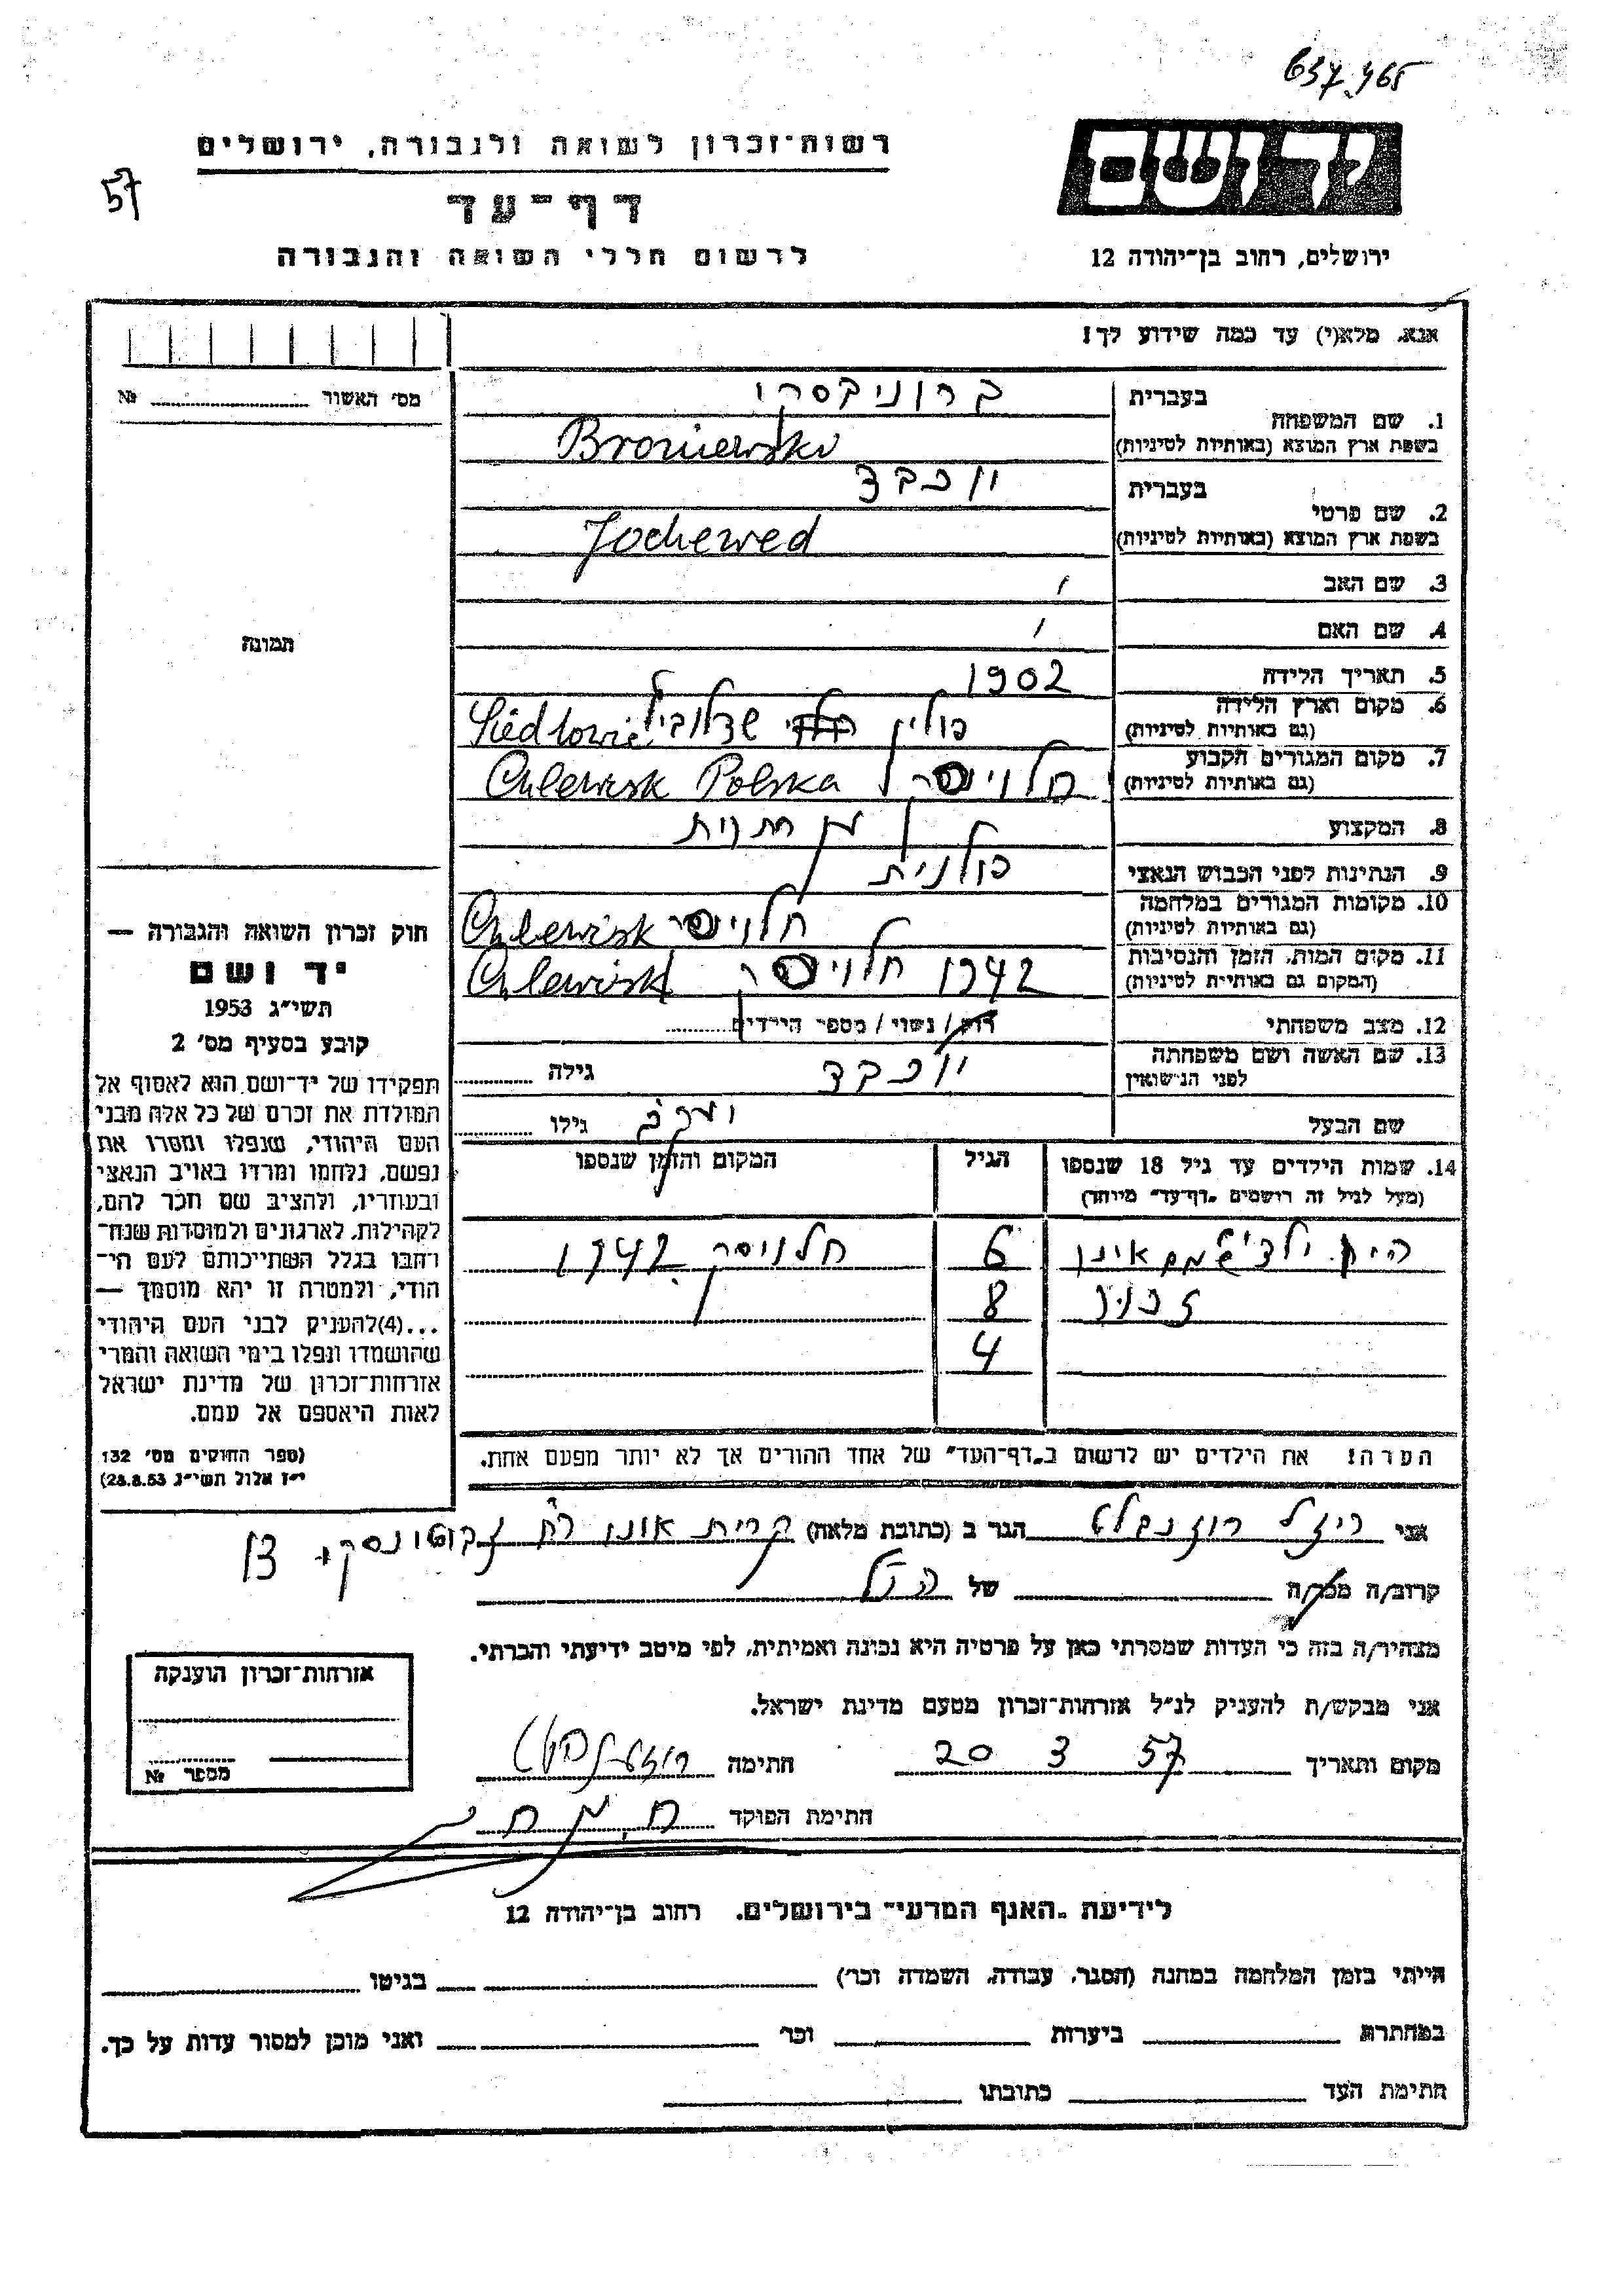 637.965
57
רשות־זכרון לשואה ולגבורה, ירושלים
דף־עד
לרשום חללי השואה והגבורה
יד ושם
ירושלים, רחוב בן־יהודה 12
אנא, מלא(י) עד כמה שידוע לך!
מס׳ האשור № 
תמונה
1. שם המשפחה
בעברית ברוניבסקי
בשפת ארץ המוצא (באותיות לטיניות) Broniewski
2. שם פרטי
בעברית יוכבד
בשפת ארץ המוצא (באותיות לטיניות) Jochewed
3. שם האב
4. שם האם
5. תאריך הלידה 1902
6. מקום וארץ הלידה
(גם באותיות לטיניות) פולין Siedlowie
7. מקום המגורים הקבוע
(גם באותיות לטיניות) Chlewisk Polska
8. המקצוע חנות
9. הנתינות לפני הכבוש הנאצי פולנית
10. מקומות המגורים במלחמה
(גם באותיות לטיניות) Chlewisk
11. מקום המות, הזמן והנסיבות
(המקום גם באותיות לטיניות) 1942 Chlewisk
12. מצב משפחתי רוק/ נשוי / מספר הילדים
13. שם האשה ושם משפחתה
לפני הנישואין יוכבד גילה
שם הבעל יעקב גילו
14. שמות הילדים עד גיל 18 שנספו
(מעל לגיל זה רושמים „דף־עד״ מיוחד)
הגיל
המקום והזמן שנספו
6 חלויסק 1942
8
4
הערה! את הילדים יש לרשום ב„דף־העד״ של אחד ההורים אך לא יותר מפעם אחת.
חוק זכרון השואה והגבורה —
יד ושם
תשי״ג 1953
קובע בסעיף מס׳ 2
תפקידו של יד־ושם הוא לאסוף אל
המולדת את זכרם של כל אלה מבני
העם היהודי, שנפלו ומסרו את
נפשם, נלחמו ומרדו באויב הנאצי
ובעוזריו, ולהציב שם וזכר להם,
לקהילות, לארגונים ולמוסדות שנח־
רחבו בגלל השתייכותם לעם הי־
הודי, ולמטרה זו יהא מוסמך —
...(4)להעניק לבני העם היהודי
שהושמדו ונפלו בימי השואה והמרי
אזרחות־זכרון של מדינת ישראל
לאות היאספם אל עמם.
(ספר החוקים מס׳ 132
י״ז אלול תשי״ג 28.8.53)
אני רייזל רוזנבלט הגר ב (כתובת מלאה) קרית אונו רח ז׳בוטונסקי
קרוב/ה מכר/ה של הנ״ל
מצהיר/ה בזה כי העדות שמסרתי כאן על פרטיה היא נכונה ואמיתית, לפי מיטב ידיעתי והכרתי.
אני מבקש/ת להעניק לנ״ל אזרחות־זכרון מטעם מדינת ישראל.
מקום ותאריך 20 3 57 חתימה
חתימת הפוקד
אזרחות־זכרון הוענקה
מספר №
לידיעת „האגף המדעי״ בירושלים. רחוב בן־יהודה 12
הייתי בזמן המלחמה במחנה (הסגר, עבודה, השמדה וכו׳) בגיטו
במחתרת ביערות וכו׳ ואני מוכן למסור עדות על כך.
חתימת העד כתובתו